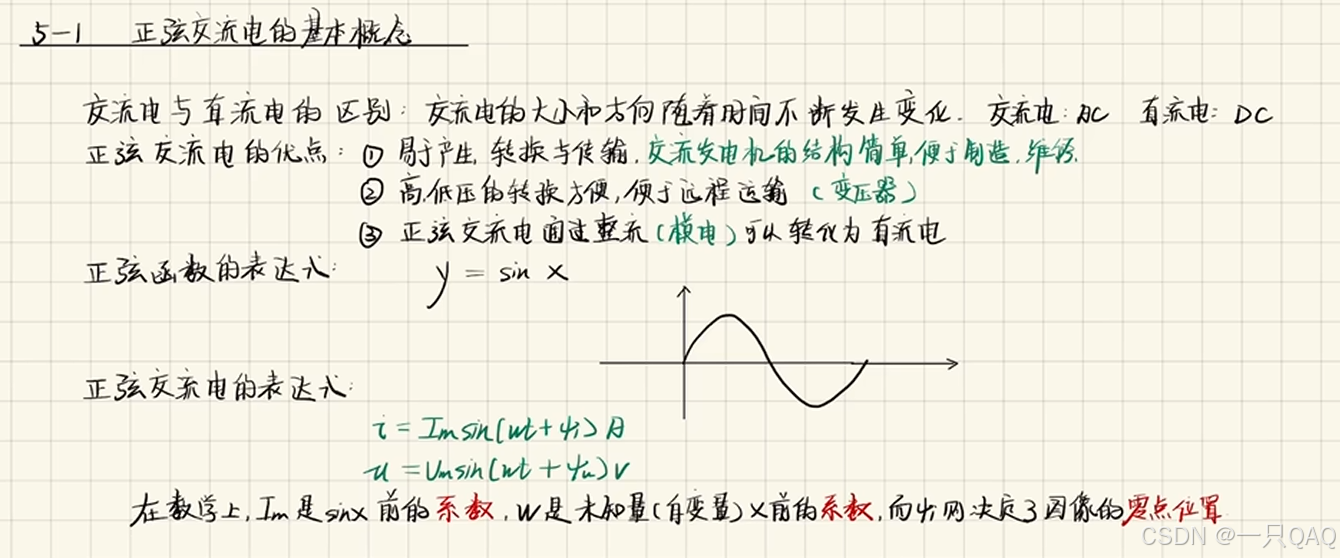 5-1 正弦交流电的基本概念
交流电与直流电的区别：交流电的大小和方向随着时间不断发生变化. 交流电：AC 直流电：DC
正弦交流电的优点：① 易于产生,转换与传输,交流发电机的结构简单,便于制造,维修.
② 高低压的转换方便,便于远程运输（变压器）
③ 正弦交流电通过整流（模电）可以转化为直流电
正弦函数的表达式： y = sin x
正弦交流电的表达式：
i = Im sin(ωt + ψi) A
u = Um sin(ωt + ψu) V
在数学上, Im 是 sinx 前的系数, W是未知量(自变量) X前的系数, 而ψi 则决定了图像的零点位置.
CSDN @一只QAQ